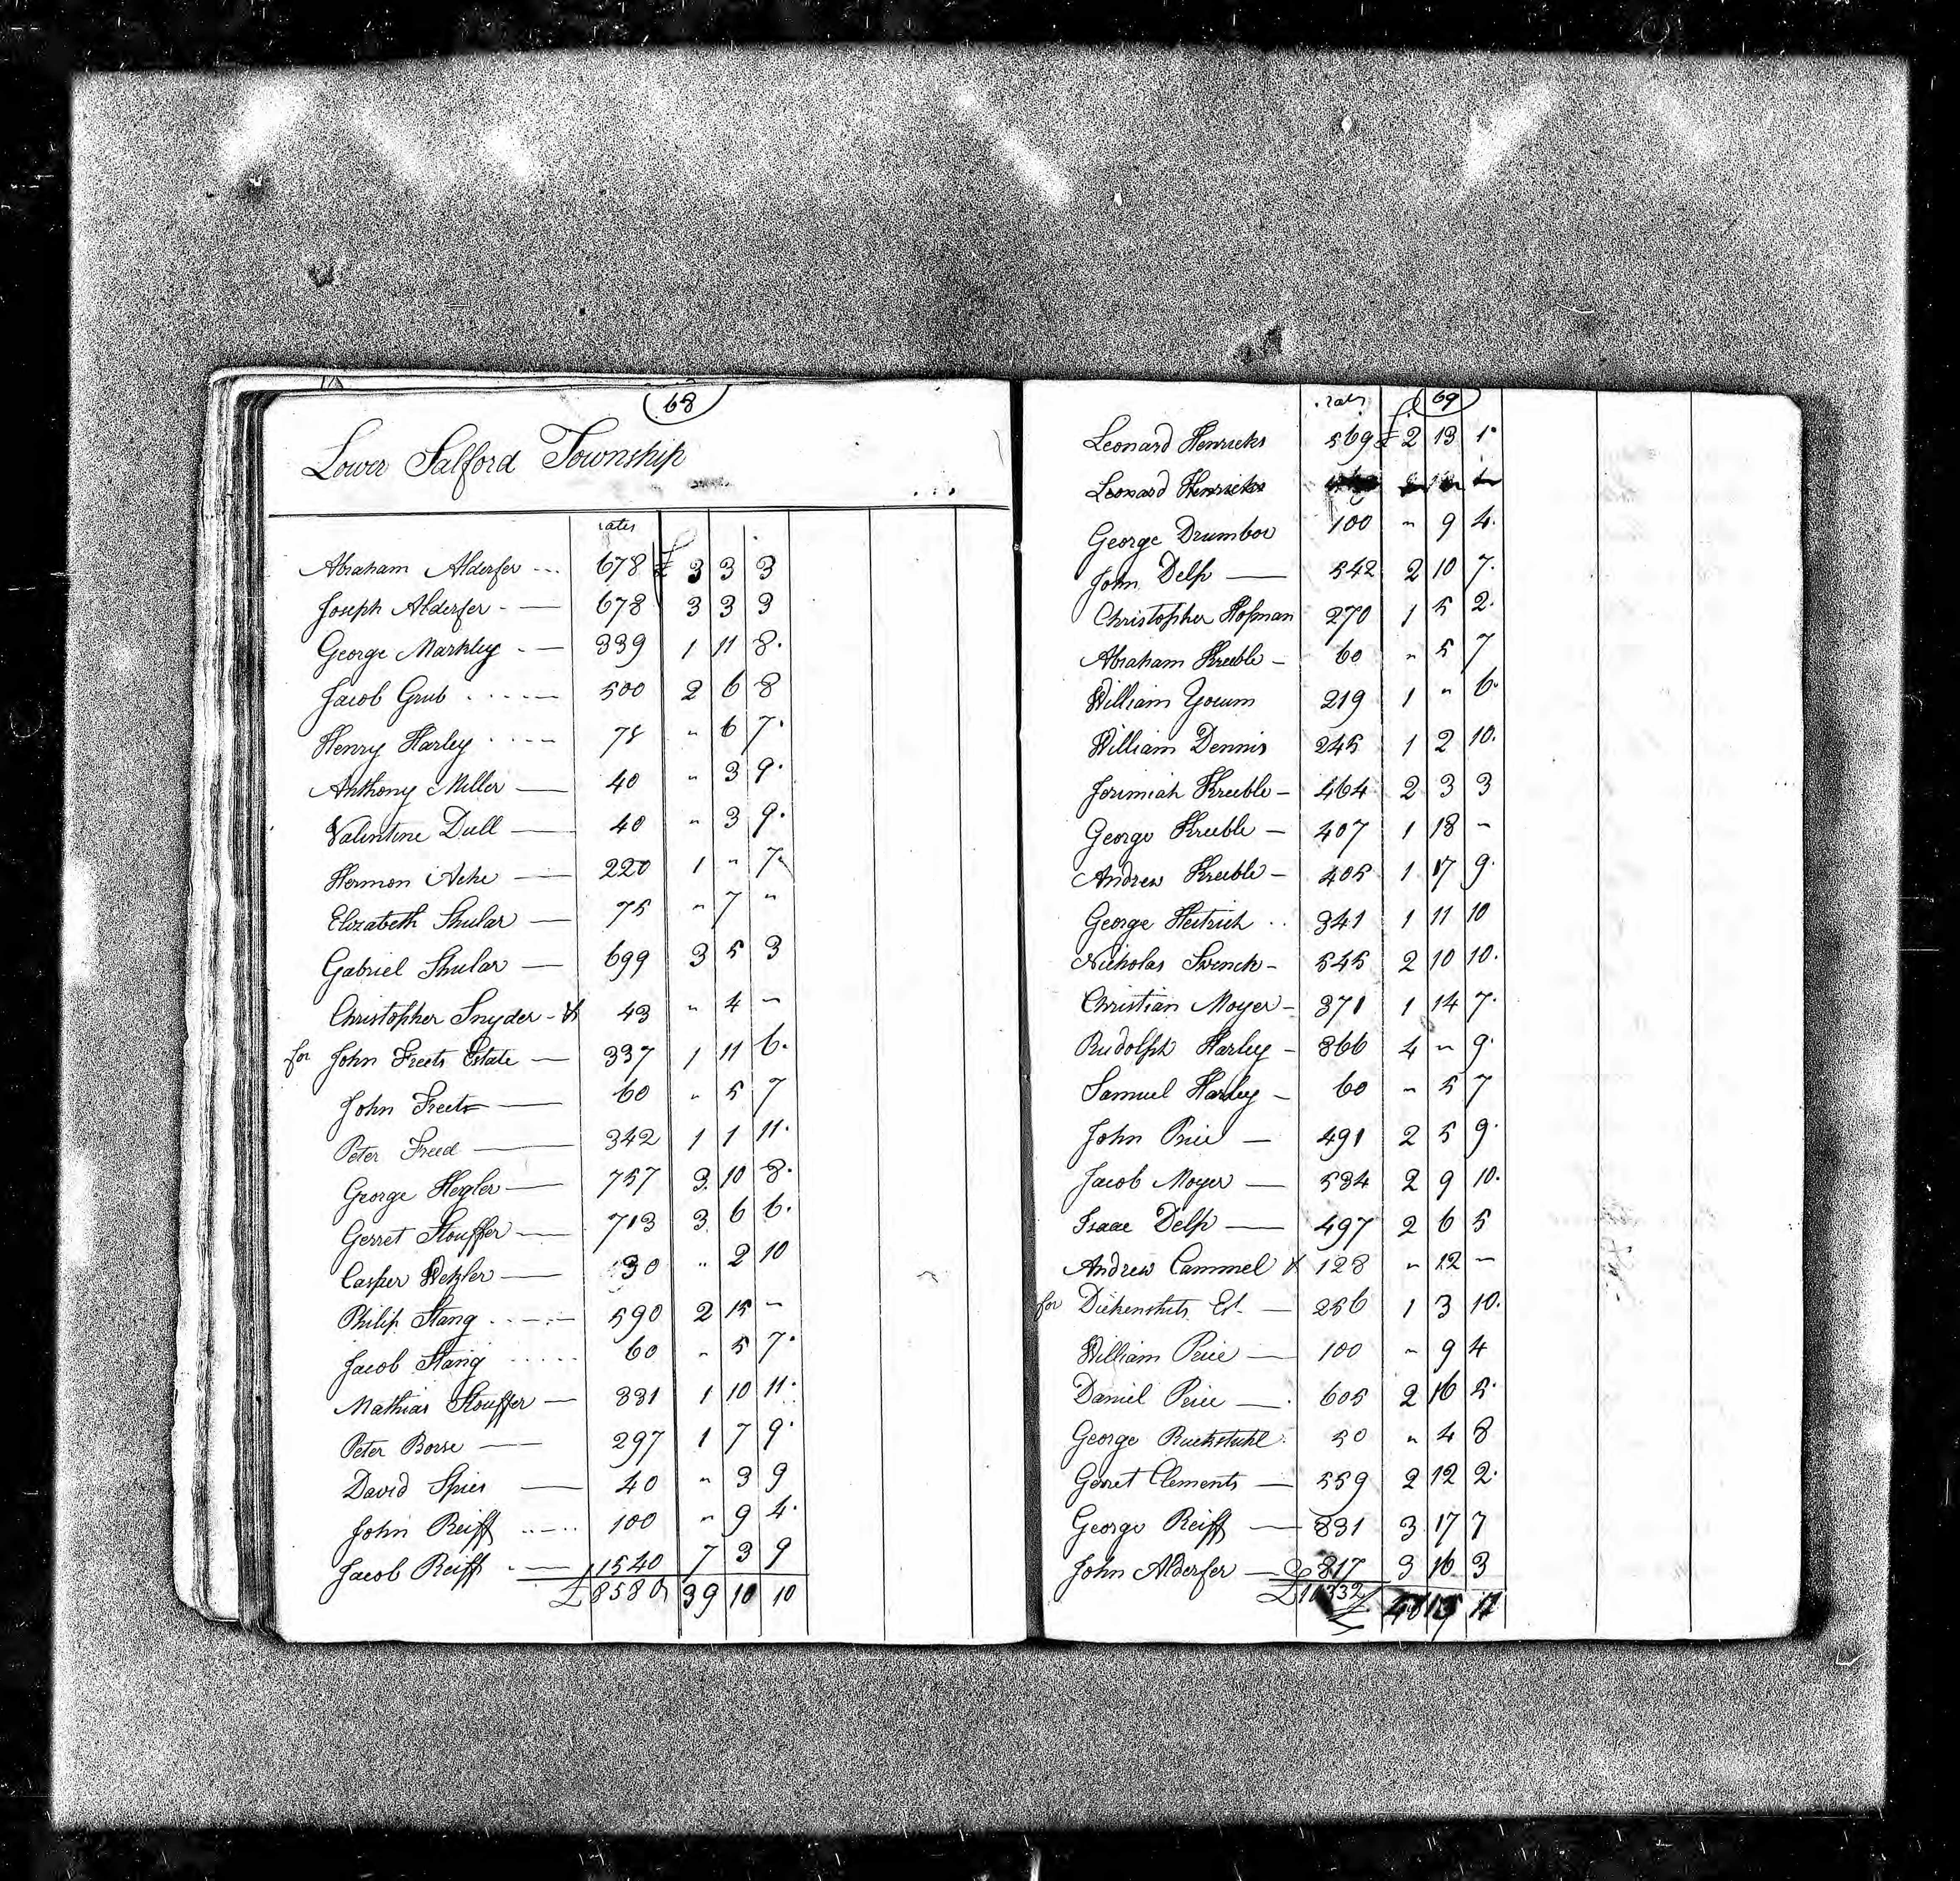 68
Lower Salford Township
rates
Abraham Alderfer ... 678 £ 3 3 3
Joseph Alderfer - — 678 3 3 3
George Markley - — 339 1 11 8.
Jacob Grub ..... — 500 2 6 8
Henry Harley .... — 78 " 6 7.
Anthony Miller — 40 " 3 9.
Valentine Dull — 40 " 3 9.
Hermon Ache — 220 1 " 7.
Elizabeth Shular — 75 " 7 "
Gabriel Shular — 699 3 5 3
Christopher Snyder - 43 " 4 "
for John Freets Estate — 337 1 11 6.
John Freets — 60 " 5 7
Peter Freed — 342 1 1 11.
George Hegler — 757 3. 10 8.
Gerret Stouffer — 713 3. 6 6.
Casper Wetzler — 30 " 2 10
Philip Stang .... — 590 2 15 "
Jacob Stang ..... 60 " 5 7.
Mathias Stouffer — 331 1 10 11.
Peter Borse — 297 1 7 9.
David Spies — 40 " 3 9
John Reiff ..... 100 " 9 4.
Jacob Reiff . — 1540 7 3 9
£ 8580 39 10 10
69
rates
Leonard Henricks 569 £ 2 13 1.
Leonard Henricks
George Drumbor 100 " 9 4.
John Delp — 542 2 10 7.
Christopher Hofman 270 1 5 2.
Abraham Kreeble - 60 " 5 7
William Yocum 219 1 " 6.
William Dennis 245 1 2 10.
Jerimiah Kreeble - 464 2 3 3
George Kreeble — 407 1 18 "
Andrew Kreeble - 405 1 17 9.
George Heitrich .. 341 1 11 10
Nicholas Swenck - 545 2 10 10.
Christian Moyer - 371 1 14 7.
Rudolph Harley - 866 4 " 9.
Samuel Harley - 60 " 5 7
John Price — 491 2 5 9.
Jacob Moyer — 534 2 9 10.
Isaac Delp — 497 2 6 5
Andrew Cammel 128 " 12 "
for Dickenshets Est. — 256 1 3 10.
William Price — 100 " 9 4
Daniel Price — . 605 2 16 5.
George Ruckstuhl . 50 " 4 8
Gerret Clements — 559 2 12 2.
George Reiff — 831 3 17 7
John Alderfer — 817 3 16 3